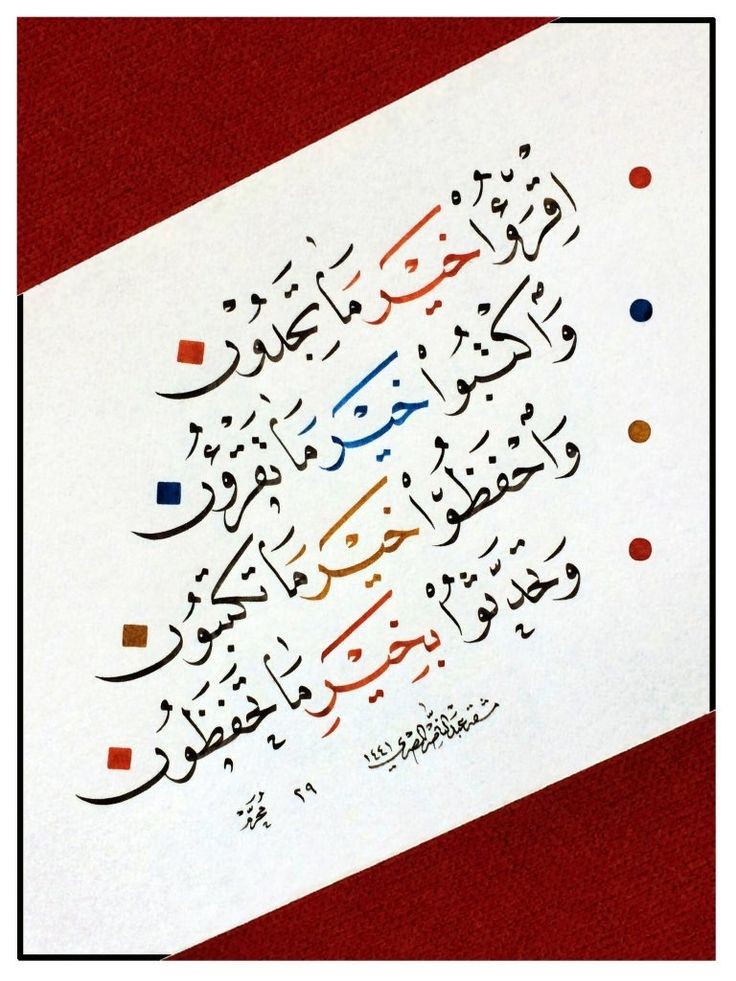 اِقْرَؤُا خَيْرَ مَا تَجِدُونْ
وَاكْتُبُوا خَيْرَ مَا تَقْرَؤُنْ
وَاحْفَظُوا خَيْرَ مَا تَكْتُبُونْ
وَتَحَدَّثُوا بِخَيْرِ مَا تَحْفَظُونْ
مشقه عبد الناصر المصري ١٤٤١
٢٩ محرّم